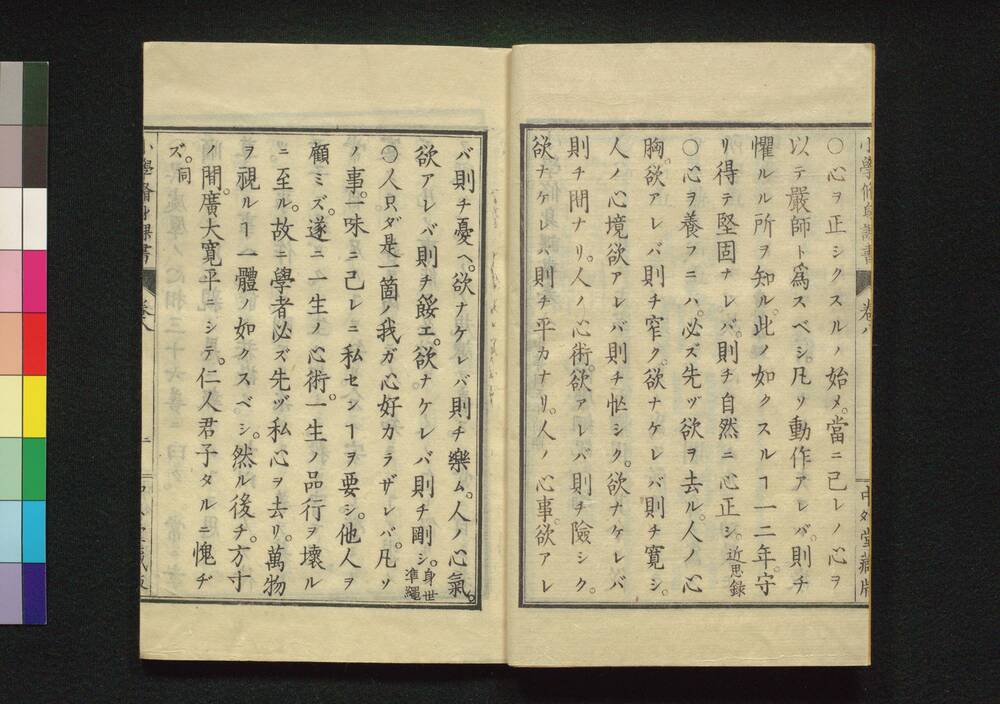 小學修身課書
卷八
中外堂藏版
〇心ヲ正シクスルノ始メ。當ニ己レノ心ヲ
以テ嚴師ト爲スベシ。凡ソ動作アレバ。則チ
懼ルル所ヲ知ル。此ノ如クスルヿ一二年。守
リ得テ堅固ナレバ。則チ自然ニ心正シ。近思錄
〇心ヲ養フニハ。必ズ先ヅ欲ヲ去ル。人ノ心
胸。欲アレバ則チ窄ク。欲ナケレバ則チ寛シ。
人ノ心境欲アレバ則チ忙シク。欲ナケレバ
則チ閒ナリ。人ノ心術。欲アレバ則チ險シク。
欲ナケレバ則チ平カナリ。人ノ心事。欲アレ
バ則チ憂ヘ。欲ナケレバ則チ樂ム。人ノ心氣。
欲アレバ則チ餒エ。欲ナケレバ則チ剛シ。身世準繩
〇人只ダ是一箇ノ我ガ心好カラザレバ。凡ソ
ノ事。一味ニ己レニ私センヿヲ要シ。他人ヲ
顧ミズ。遂ニ一生ノ心術。一生ノ品行ヲ壞ル
ニ至ル。故ニ學者必ズ先ヅ私心ヲ去リ。萬物
ヲ視ルヿ一體ノ如クスベシ。然ル後チ。方寸
ノ間。廣大寛平ニシテ。仁人君子タルニ愧ヂ
ズ。同
小學修身課書
卷八
二
中外堂藏版